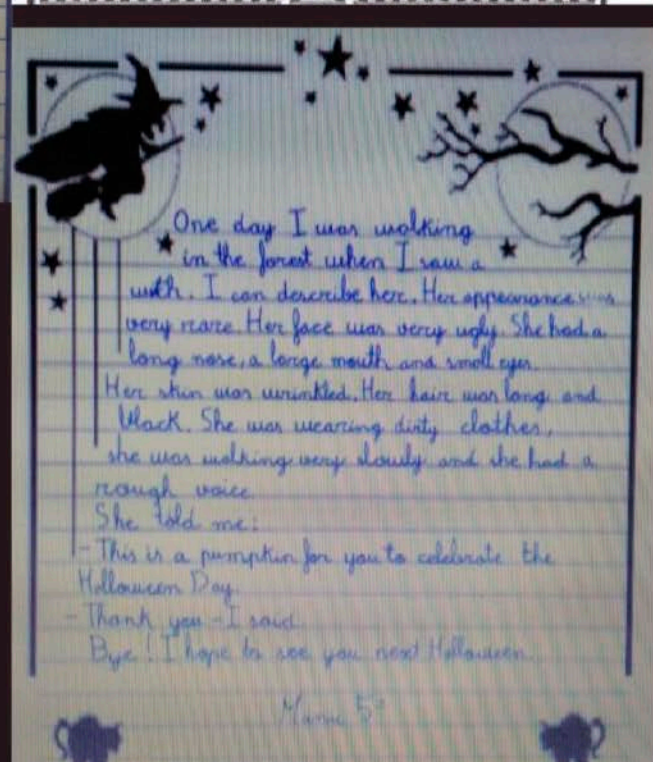 One day I was walking
in the forest when I saw a
with. I can describe here. Her appearance was
very rare. Her face was very ugly. She had a
long nose, a large mouth and small eyes.
Her skin was wrinkled. Her hair was long and
black. She was wearing dirty clothes,
she was walking very slowly and she had a
rough voice.
She told me:
- This is a pumpkin for you to celebrate the
Halloween Day.
- Thank you - I said.
Bye! I hope to see you next Halloween.
5º